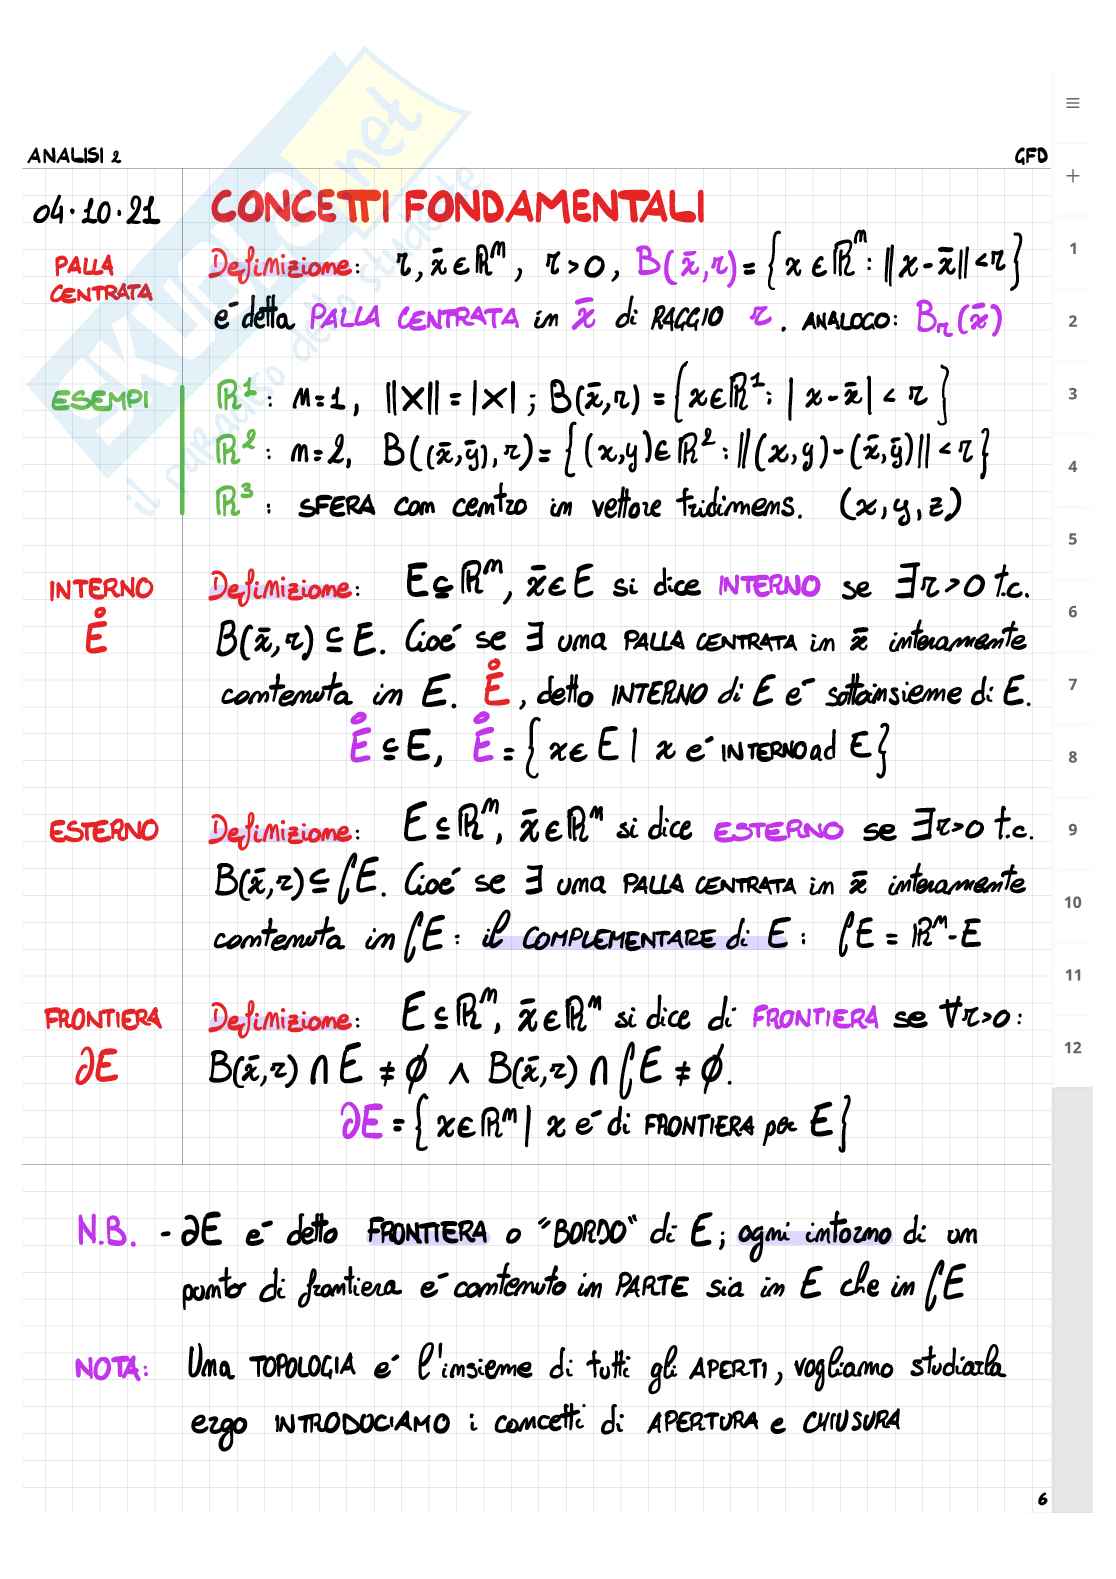 ANALISI 2
GFD
04.10.21 CONCETTI FONDAMENTALI
PALLA CENTRATA
Definizione: r, x̄ ∈ ℝⁿ, r > 0, B(x̄, r) = { x ∈ ℝⁿ : ‖x - x̄‖ < r }
é detta PALLA CENTRATA in x̄ di RAGGIO r. ANALOGO: Bᵣ(x̄)
ESEMPI
ℝ¹: n=1, ‖X‖ = |X| ; B(x̄, r) = { x ∈ ℝ¹ : | x - x̄ | < r }
ℝ²: n=2, B((x̄, ȳ), r) = { (x, y) ∈ ℝ² : ‖(x, y) - (x̄, ȳ)‖ < r }
ℝ³: SFERA con centro in vettore tridimens. (x, y, z)
INTERNO
E̊
Definizione: E ⊆ ℝⁿ, x̄ ∈ E si dice INTERNO se ∃ r > 0 t.c.
B(x̄, r) ⊆ E. Cioé se ∃ una PALLA CENTRATA in x̄ interamente
contenuta in E. E̊, detto INTERNO di E é sottoinsieme di E.
E̊ ⊆ E, E̊ = { x ∈ E | x é INTERNO ad E }
ESTERNO
Definizione: E ⊆ ℝⁿ, x̄ ∈ ℝⁿ si dice ESTERNO se ∃ r > 0 t.c.
B(x̄, r) ⊆ ∁E. Cioé se ∃ una PALLA CENTRATA in x̄ interamente
contenuta in ∁E : il COMPLEMENTARE di E : ∁E = ℝⁿ - E
FRONTIERA
∂E
Definizione: E ⊆ ℝⁿ, x̄ ∈ ℝⁿ si dice di FRONTIERA se ∀ r > 0 :
B(x̄, r) ∩ E ≠ ∅ ∧ B(x̄, r) ∩ ∁E ≠ ∅.
∂E = { x ∈ ℝⁿ | x é di FRONTIERA per E }
N.B. - ∂E é detto FRONTIERA o "BORDO" di E ; ogni intorno di un
punto di frontiera é contenuto in PARTE sia in E che in ∁E
NOTA: Una TOPOLOGIA é l'insieme di tutti gli APERTI, vogliamo studiarla
ergo INTRODUCIAMO i concetti di APERTURA e CHIUSURA
6
+
1
2
3
4
5
6
7
8
9
10
11
12
SKUOLA.net
il paradiso dello studente